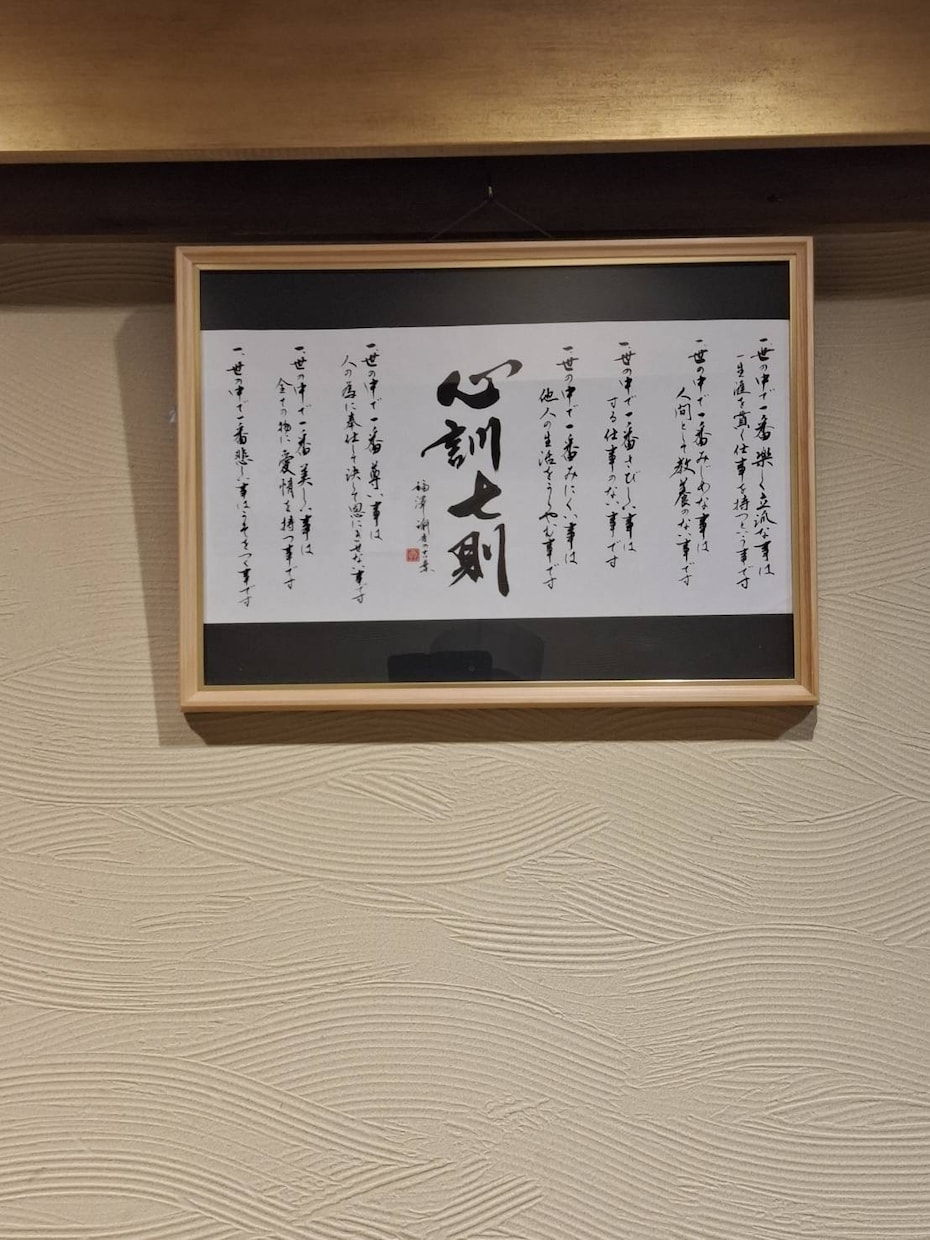 一、世の中で一番楽しく立派な事は
一生涯を貫く仕事を持つという事です
一、世の中で一番みじめな事は
人間として教養のない事です
一、世の中で一番さびしい事は
する仕事のない事です
一、世の中で一番みにくい事は
他人の生活をうらやむ事です
心訓七則
福澤諭吉の言葉
一、世の中で一番尊い事は
人の為に奉仕して決して恩にきせない事です
一、世の中で一番美しい事は
全ての物に愛情を持つ事です
一、世の中で一番悲しい事はうそをつく事です